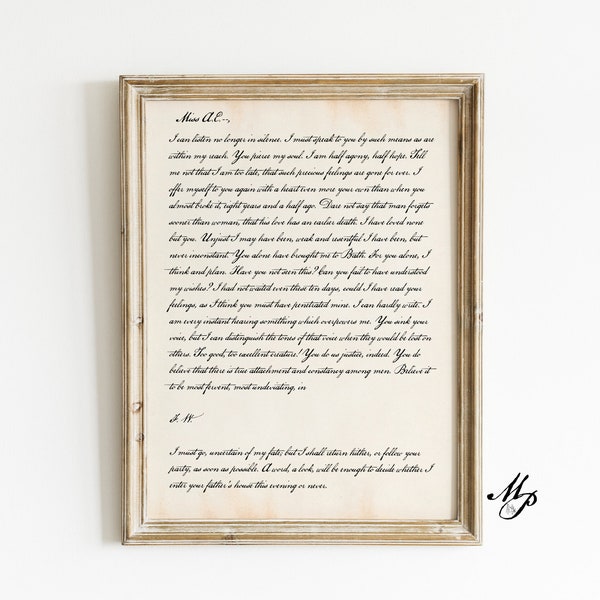 Miss A.E.-,
I can listen no longer in silence. I must speak to you by such means as are
within my reach. You pierce my soul. I am half agony, half hope. Tell
me not that I am too late, that such precious feelings are gone for ever. I
offer myself to you again with a heart even more your own than when you
almost broke it, eight years and a half ago. Dare not say that man forgets
sooner than woman, that his love has an earlier death. I have loved none
but you. Unjust I may have been, weak and resentful I have been, but
never inconstant. You alone have brought me to Bath. For you alone, I
think and plan. Have you not seen this? Can you fail to have understood
my wishes? I had not waited even these ten days, could I have read your
feelings, as I think you must have penetrated mine. I can hardly write. I
am every instant hearing something which overpowers me. You sink your
voice, but I can distinguish the tones of that voice when they would be lost on
others. Too good, too excellent creature! You do us justice, indeed. You do
believe that there is true attachment and constancy among men. Believe it
to be most fervent, most undeviating, in
F. W.
I must go, uncertain of my fate; but I shall return hither, or follow your
party, as soon as possible. A word, a look, will be enough to decide whether I
enter your father's house this evening or never.
MP